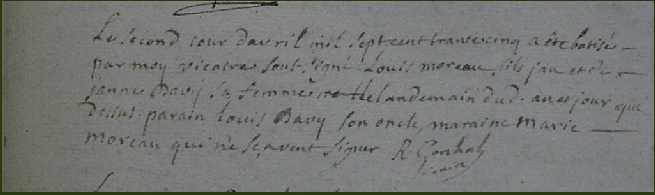 Le second jour davril mil sept cent trante cinq a été batisé
par moy vicaire sout signé Louis moreau fils jan et de
janne Bavy sa femme né le landemain dud. an et jour que
dessus parain Louis Bavy son oncle mamine Marie
moreau qui ne sçavent signer R